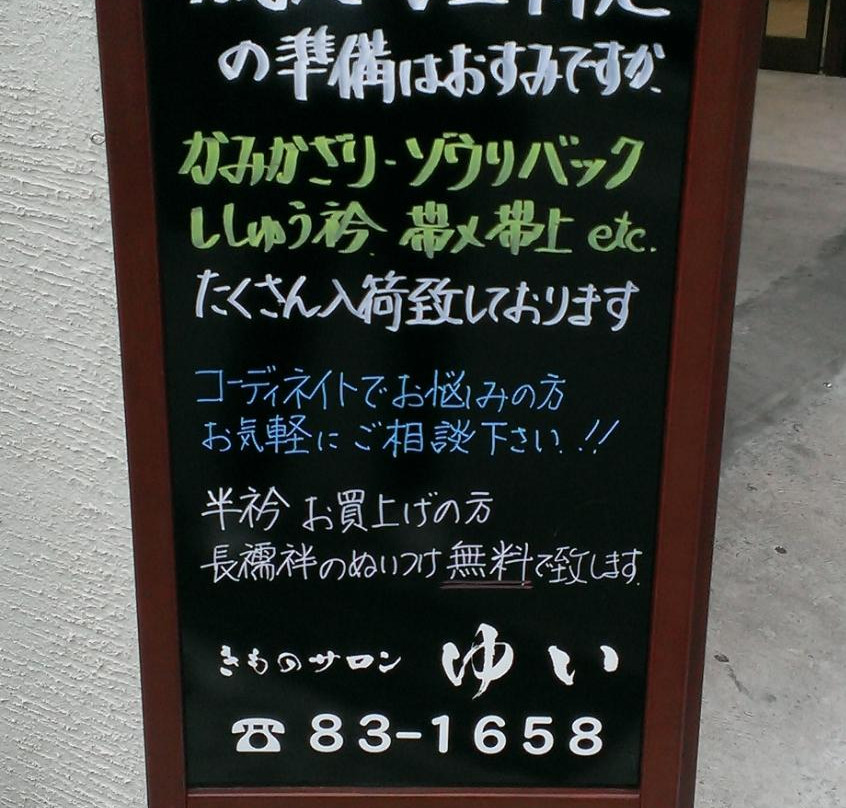 の準備はおすみですか、
かみかざり-ゾウリバック
ししゅう衿、帯〆帯上 etc.
たくさん入荷致しております
コーディネイトでお悩みの方
お気軽にご相談下さい.!!
半衿 お買上げの方
長襦袢のぬいつけ無料で致します.
きものサロン ゆい
☎83-1658